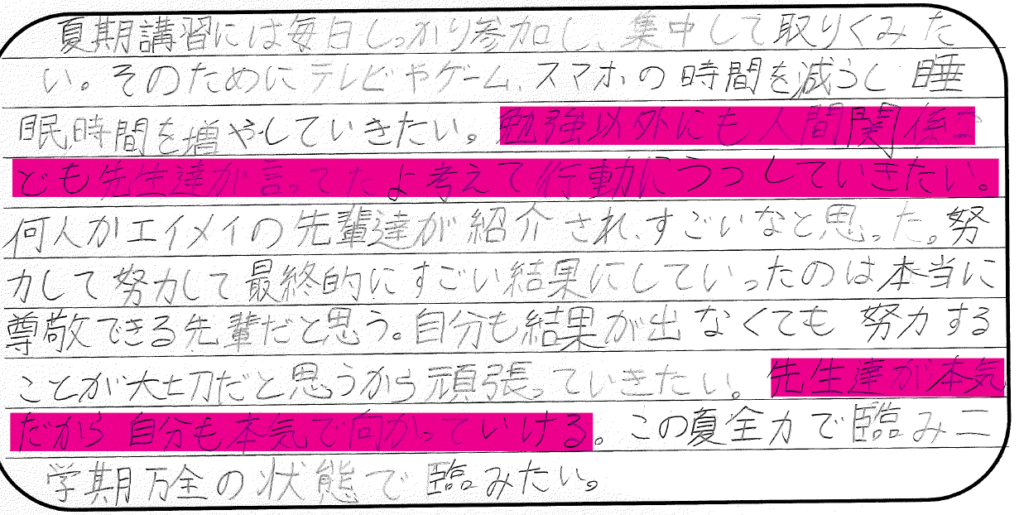 夏期講習には毎日しっかり参加し、集中して取りくみた
い。そのためにテレビやゲーム、スマホの時間を減らし睡
眠時間を増やしていきたい。勉強以外にも人間関係な
ども先生達が言ってたよ考えて行動にうつしていきたい。
何人かエイメイの先輩達が紹介され、すごいなと思った。努
力して努力して最終的にすごい結果にしていったのは本当に
尊敬できる先輩だと思う。自分も結果が出なくても努力する
ことが大切だと思うから頑張っていきたい。先生達が本気
だから自分も本気で向かっていける。この夏全力で臨み二
学期万全の状態で臨みたい。